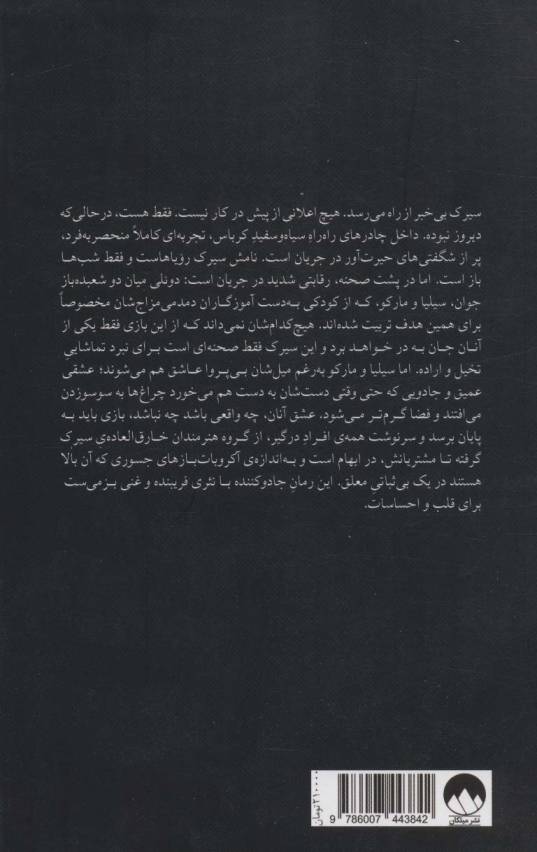 سیرک بی‌خبر از راه می‌رسد. هیچ اعلانی از پیش در کار نیست. فقط هست، در حالی که
دیروز نبوده. داخل چادرهای راه‌راهِ سیاه‌وسفیدِ کرباس، تجربه‌ای کاملاً منحصربه‌فرد،
پر از شگفتی‌های حیرت‌آور در جریان است. نامش سیرک رویاهاست و فقط شب‌ها
باز است. اما در پشت صحنه، رقابتی شدید در جریان است: دونلی میان دو شعبده‌باز
جوان، سیلیا و مارکو، که از کودکی به‌دست آموزگاران دمدمی‌مزاج‌شان مخصوصاً
برای همین هدف تربیت شده‌اند. هیچ‌کدام‌شان نمی‌داند که از این بازی فقط یکی از
آنان جان به در خواهد برد و این سیرک فقط صحنه‌ای است برای نبرد تماشاییِ
تخیل و اراده. اما سیلیا و مارکو به‌رغم میل‌شان بی‌پروا عاشق هم می‌شوند؛ عشقی
عمیق و جادویی که حتی وقتی دست‌شان به دست هم می‌خورد چراغ‌ها به سوسوزدن
می‌افتند و فضا گرم‌تر می‌شود. عشق آنان، چه واقعی باشد چه نباشد، بازی باید به
پایان برسد و سرنوشت همه‌ی افرادِ درگیر، از گروه هنرمندان خارق‌العاده‌ی سیرک
گرفته تا مشتریانش، در ابهام است و به‌اندازه‌ی آکروبات‌بازهای جسوری که آن بالا
هستند در یک بی‌ثباتیِ معلق. این رمانِ جادوکننده با نثری فریبنده و غنی بزمی‌ست
برای قلب و احساسات.
۲۱۰۰۰۰ تومان
9 786007 443842
نشر میلکان